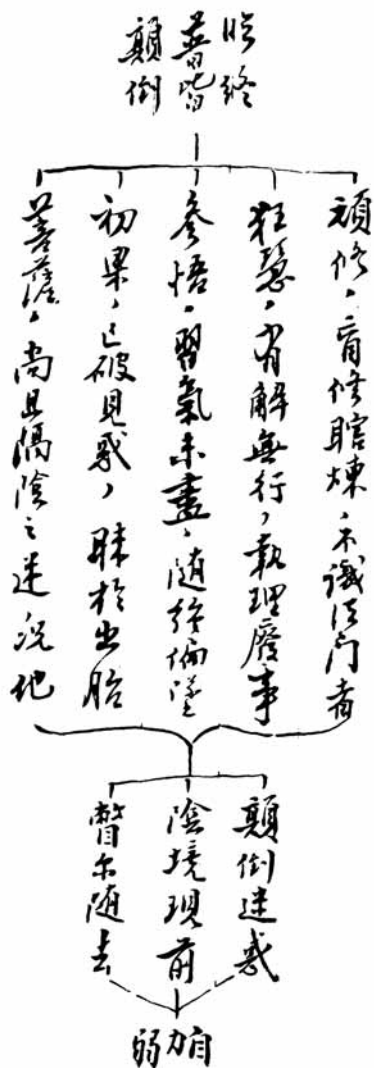 臨終
普皆
顛倒
頑修，盲修瞎煉，不識法門者
狂慧，有解無行，執理廢事
參悟，習氣未盡，隨強偏墜
初果，已破見惑，昧於出胎
菩薩，尚且隔陰之迷況他
顛倒迷惑
險境現前
瞥爾隨去
自力弱